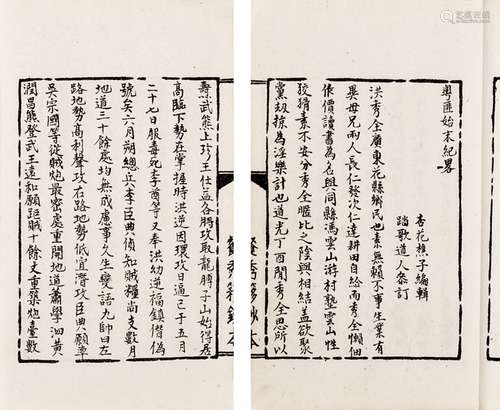 粵匪始末紀畧
杏花樵子編輯
踏歌道人叅訂
洪秀全廣東花縣鄉民也素無賴不事生業有
異母兄兩人長仁發次仁達耕田自給而秀全懶佃
價讀書為名與同縣馮雲山游村塾雲山性
狡猾素不安分秀全暱比之陰與相結盖欲聚
黨刼掠為淫樂計也道光丁酉間秀全思所以
壽武熊上珍王仕益各將攻取龍脖子山始得居
高臨下勢在掌握時洪逆因環攻日逼已于五月
二十七日服毒死李酋等又奉洪幼逆福鎮僭偽
號矣六月朔總兵李臣典偵知賊糧尚支數月
地道三十餘處均無成慮事久生變語九帥曰左
路地勢高利聲攻右路地勢低宜潛攻臣典願率
吳宗國等從賊炮最密處重開地道蕭孚泗黃
潤昌熊登武王遠和願距賊十餘丈重築炮臺數